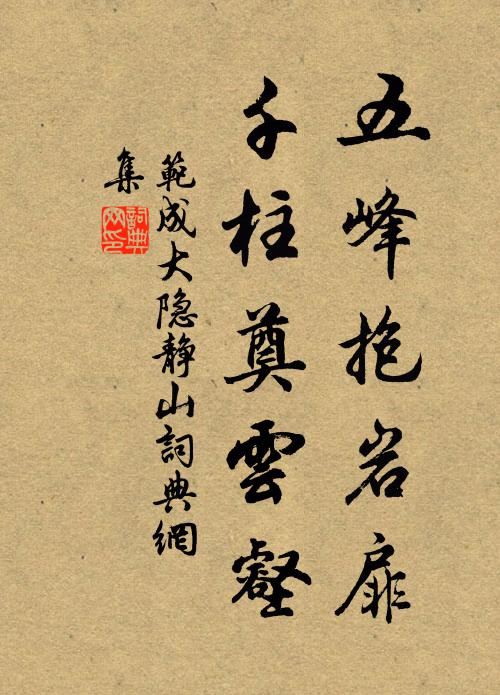 五峰抱岩扉
千柱奠雲壑
範成大隐靜山詞典網
集
詞典
网印